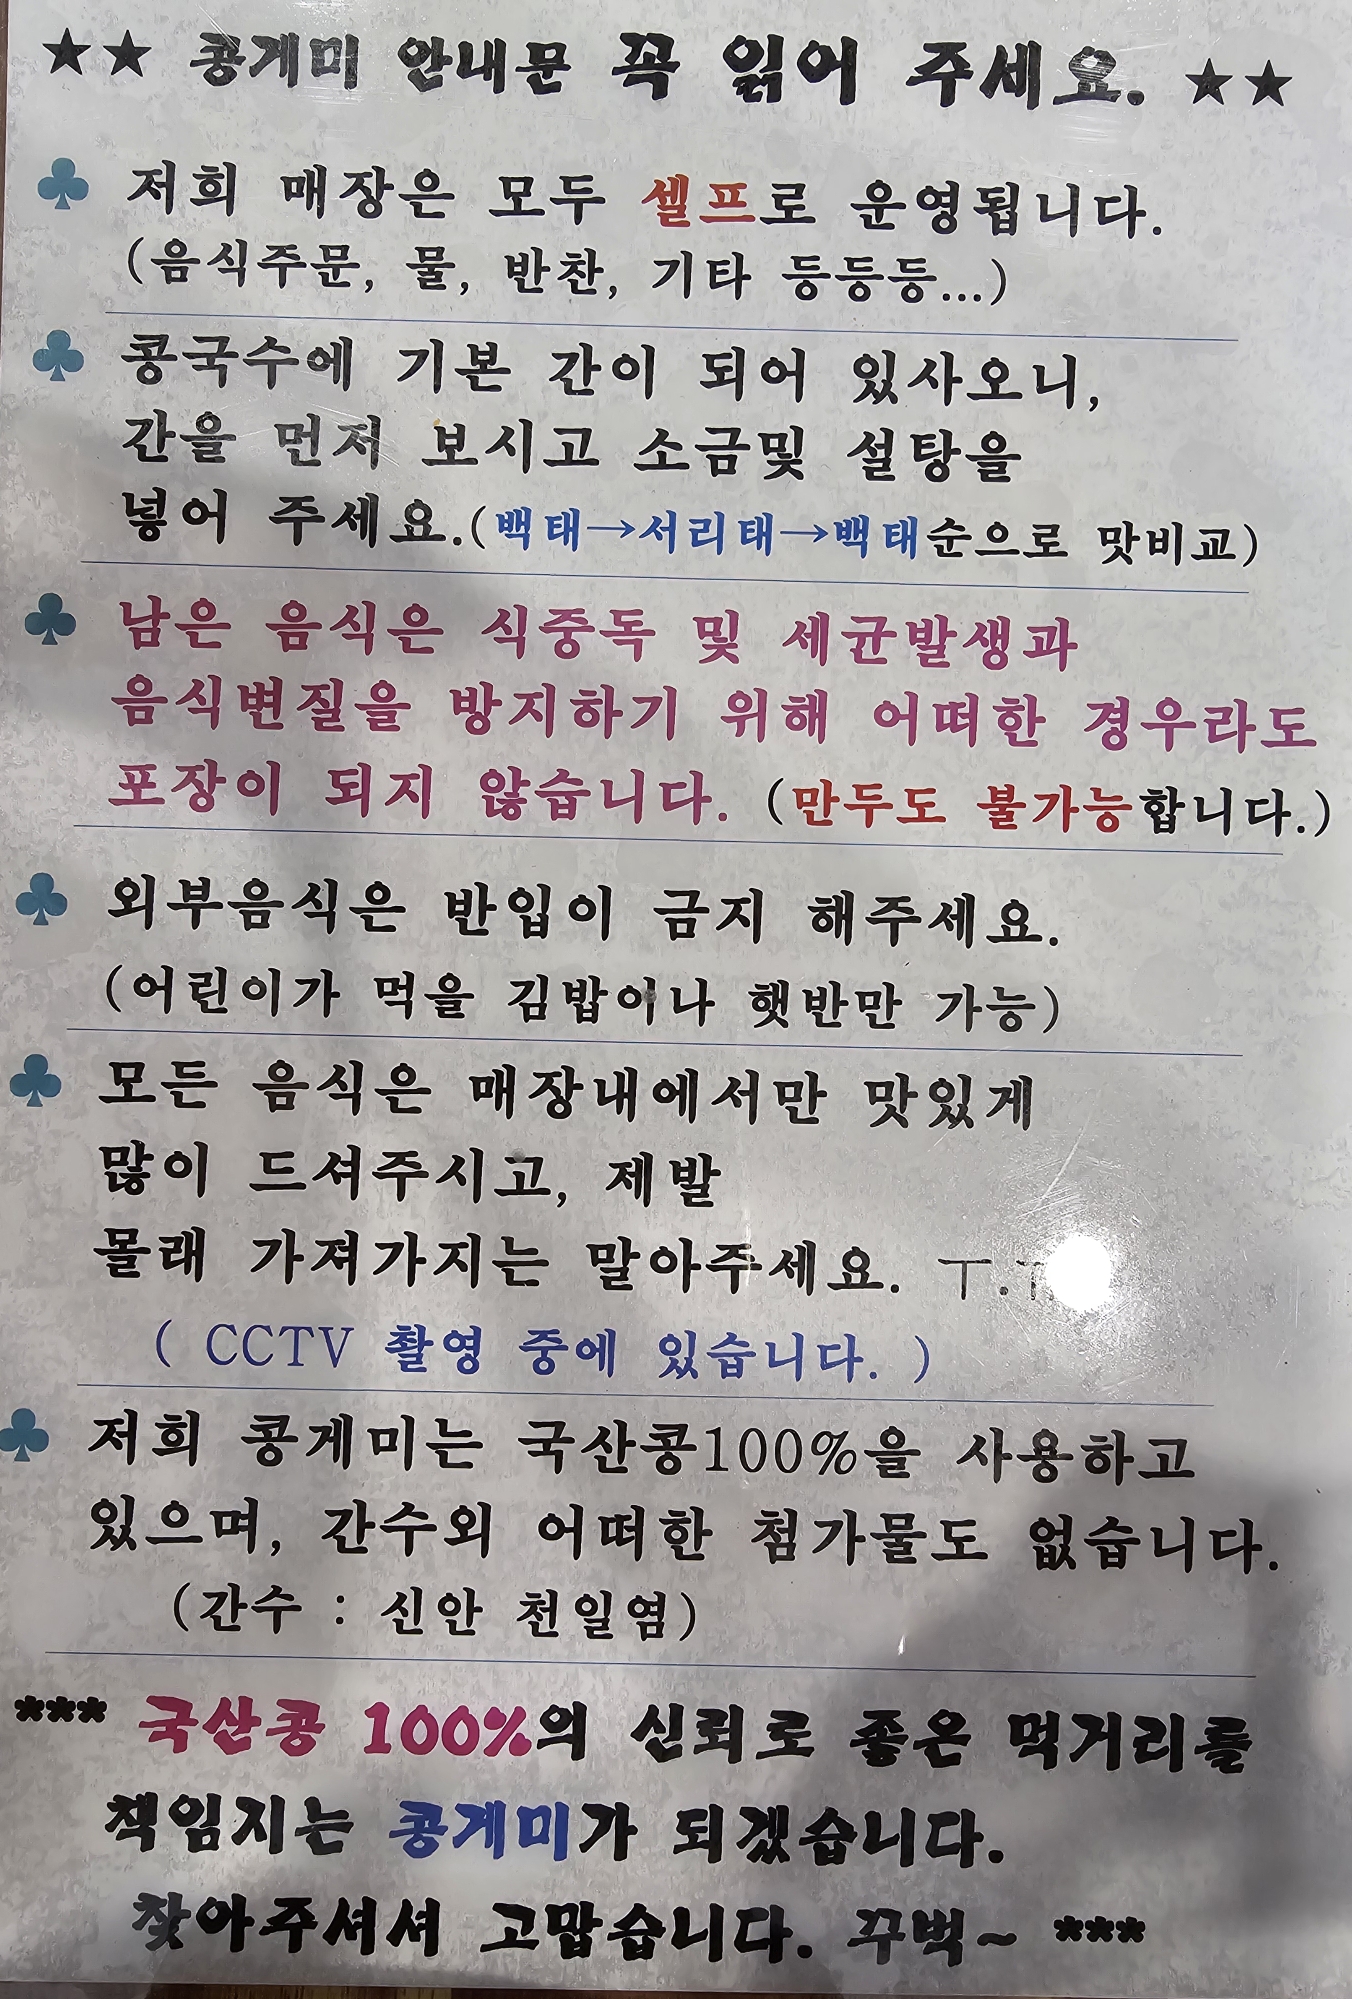 ★★ 콩게미 안내문 꼭 읽어 주세요. ★★
♣ 저희 매장은 모두 셀프로 운영됩니다.
(음식주문, 물, 반찬, 기타 등등등...)
♣ 콩국수에 기본 간이 되어 있사오니,
간을 먼저 보시고 소금및 설탕을
넣어 주세요.(백태→서리태→백태순으로 맛비교)
♣ 남은 음식은 식중독 및 세균발생과
음식변질을 방지하기 위해 어떠한 경우라도
포장이 되지 않습니다. (만두도 불가능합니다.)
♣ 외부음식은 반입이 금지 해주세요.
(어린이가 먹을 김밥이나 햇반만 가능)
♣ 모든 음식은 매장내에서만 맛있게
많이 드셔주시고, 제발
몰래 가져가지는 말아주세요. ㅜ.ㅜ
( CCTV 촬영 중에 있습니다. )
♣ 저희 콩게미는 국산콩100%을 사용하고
있으며, 간수외 어떠한 첨가물도 없습니다.
(간수 : 신안 천일염)
*** 국산콩 100%의 신뢰로 좋은 먹거리를
책임지는 콩게미가 되겠습니다.
찾아주셔셔 고맙습니다. 꾸벅~ ***